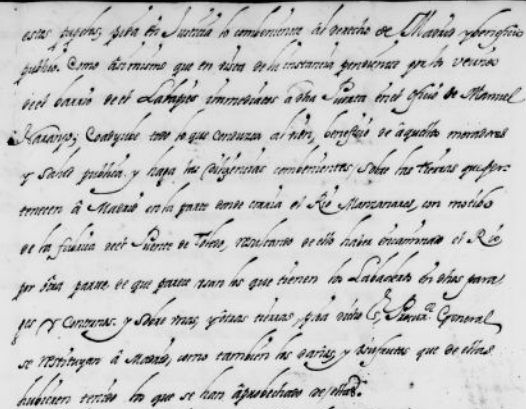 estas pida en Justicia lo combeniente al derecho de Madrid y beneficio
publico. Como asimismo que en vista de la instancia pendiente por los vecinos
de el barrio de el Labapies immediatos a dha Puerta en el oficio de Manuel
Naranjo; Coadyube todo lo que conduzca al vien, beneficio de aquellos moradores
y Salud publica, y haga las diligencias combenientes, sobre las tierras que per-
tenecen â Madrid en la parte donde traia el Rio Manzanares, con motibo
de la fabrica de el Puente de Toledo, resultando de ello haver encaminado el Rio
por otra parte, de que parece usan los que tienen los Labaderos en dhos para-
ges y Contornos. y sobre unas, y otras tierras, pida dicho Sr. Procurr. General
se restituyan â Madrid, como tambien los daños, y que de ellas
hubieren tenido los que se han aprobechado de ellas.